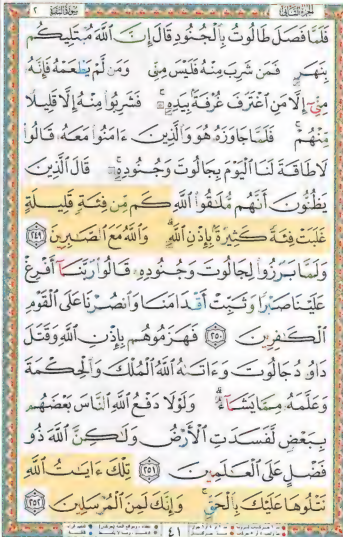 الجزء الثاني ٢ سورة البقرة
فَلَمَّا فَصَلَ طَالُوتُ بِالْجُنُودِ قَالَ إِنَّ اللَّهَ مُبْتَلِيكُم
بِنَهَرٍ فَمَن شَرِبَ مِنْهُ فَلَيْسَ مِنِّي وَمَن لَّمْ يَطْعَمْهُ فَإِنَّهُ
مِنِّي إِلَّا مَنِ اغْتَرَفَ غُرْفَةً بِيَدِهِ فَشَرِبُوا مِنْهُ إِلَّا قَلِيلًا
مِّنْهُمْ فَلَمَّا جَاوَزَهُ هُوَ وَالَّذِينَ ءَامَنُوا مَعَهُ قَالُوا
لَا طَاقَةَ لَنَا الْيَوْمَ بِجَالُوتَ وَجُنُودِهِ قَالَ الَّذِينَ
يَظُنُّونَ أَنَّهُم مُّلَٰقُوا اللَّهِ كَم مِّن فِئَةٍ قَلِيلَةٍ
غَلَبَتْ فِئَةً كَثِيرَةً بِإِذْنِ اللَّهِ وَاللَّهُ مَعَ الصَّٰبِرِينَ ٢٤٩
وَلَمَّا بَرَزُوا لِجَالُوتَ وَجُنُودِهِ قَالُوا رَبَّنَا أَفْرِغْ
عَلَيْنَا صَبْرًا وَثَبِّتْ أَقْدَامَنَا وَانصُرْنَا عَلَى الْقَوْمِ
الْكَٰفِرِينَ ٢٥٠ فَهَزَمُوهُم بِإِذْنِ اللَّهِ وَقَتَلَ
دَاوُدُ جَالُوتَ وَءَاتَىٰهُ اللَّهُ الْمُلْكَ وَالْحِكْمَةَ
وَعَلَّمَهُ مِمَّا يَشَاءُ وَلَوْلَا دَفْعُ اللَّهِ النَّاسَ بَعْضَهُم
بِبَعْضٍ لَّفَسَدَتِ الْأَرْضُ وَلَٰكِنَّ اللَّهَ ذُو
فَضْلٍ عَلَى الْعَٰلَمِينَ ٢٥١ تِلْكَ ءَايَٰتُ اللَّهِ
نَتْلُوهَا عَلَيْكَ بِالْحَقِّ وَإِنَّكَ لَمِنَ الْمُرْسَلِينَ ٢٥٢
٤١